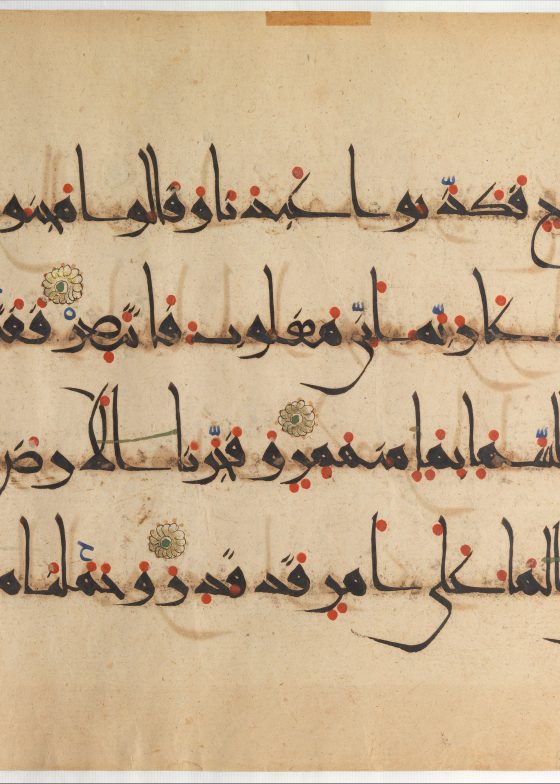 ح فكذبوا عبدنا وقالوا مجنو
عا ربه انى مغلوب فانتصر ففت
السما بما منهمر وفجرنا الارض
الما على امر قد قدر وحملناه